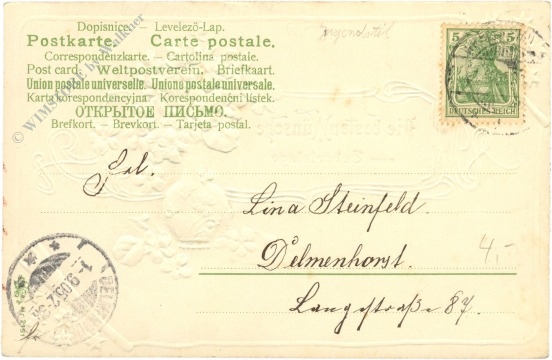 Dopisnice. – Levelező-Lap.
Postkarte. – Carte postale.
Correspondenzkarte. – Cartolina postale.
Post card. – Weltpostverein. – Briefkaart.
Union postale universelle. Unione postale universale.
Karta korespondencyjna – Korespondenční lístek.
ОТКРЫТОЕ ПИСЬМО.
Brefkort. – Brevkort. – Tarjeta postal.
Jugendstil
5 5
DEUTSCHES REICH
© WIMSTORE by Walkner
Frl.
Lina Steinfeld
Delmenhorst.
Langestraße 87.
4,-